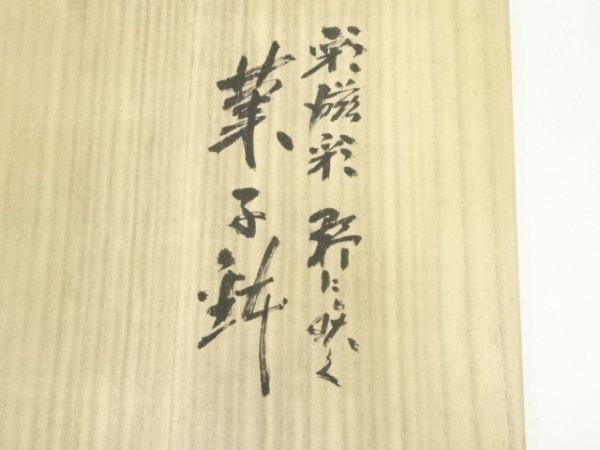 彩磁彩 野に咲く
菓子鉢